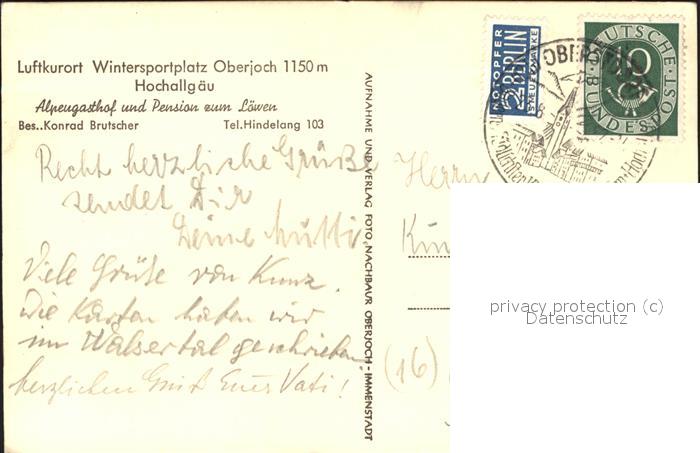 Luftkurort Wintersportplatz Oberjoch 1150 m
Hochallgäu
Alpengasthof und Pension zum Löwen
Bes..Konrad Brutscher Tel.Hindelang 103
Recht herzliche Grüße
sendet Dir
Deine Mutti
Viele Grüße von Kunz.
Die Karten haben wir
im Walsertal geschrieben.
herzlichen Gruß Euer Vati!
AUFNAHME UND VERLAG FOTO „NACHBAUR OBERJOCH - IMMENSTADT
NOTOPFER
2 BERLIN
STEUERMARKE
DEUTSCHE
BUNDESPOST
10
OBERST
Herrn
Kun
(16)
privacy protection (c)
Datenschutz